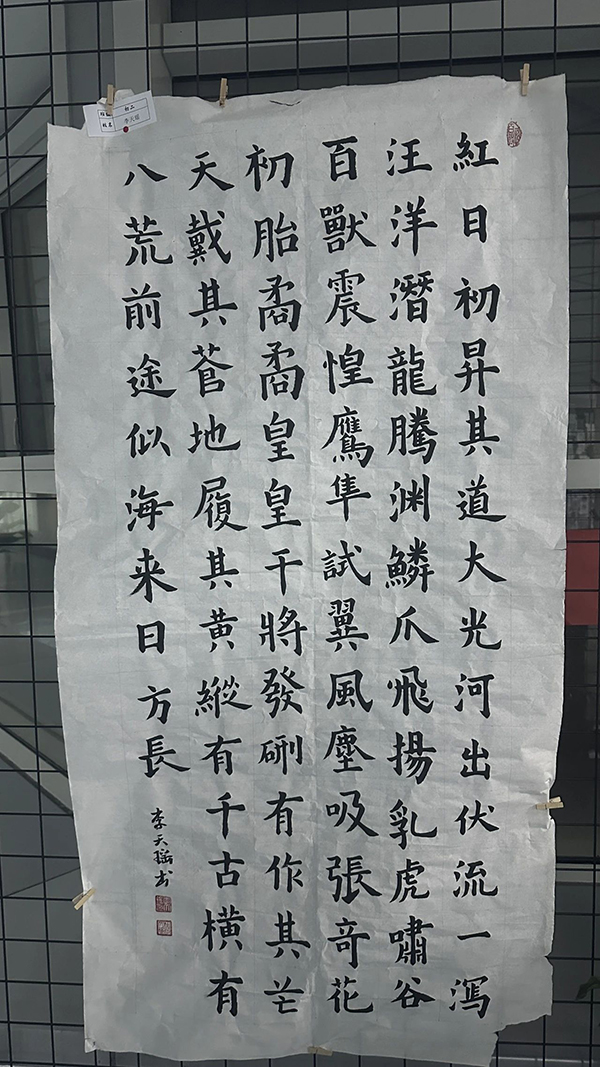 紅日初昇其道大光河出伏流一瀉
汪洋潛龍騰渊鱗爪飛揚乳虎嘯谷
百獸震惶鷹隼試翼風塵吸張奇花
初胎矞矞皇皇干將發硎有作其芒
天戴其蒼地履其黄縱有千古橫有
八荒前途似海来日方長
李天瑶书
姓名 李天瑶